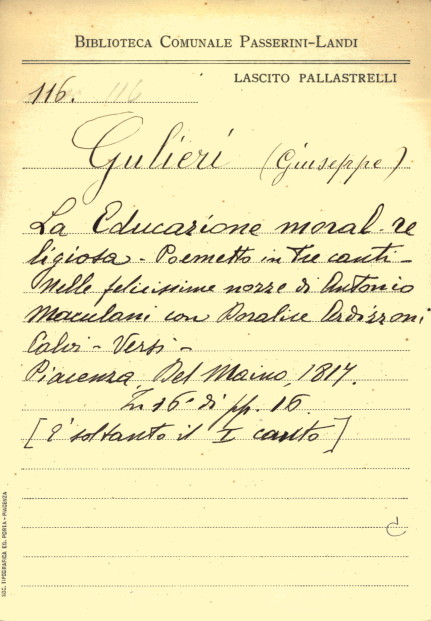 BIBLIOTECA COMUNALE PASSERINI-LANDI
LASCITO PALLASTRELLI
116. 116
Gulieri (Giuseppe)
La Educazione moral-re
ligiosa - Poemetto in tre canti -
Nelle felicissime nozze di Antonio
Maculani con Doralice Ardizzoni
Calvi - Versi -
Piacenza, Del Maino, 1817.
In 16° di pp. 16.
[È soltanto il I canto]
SOC. TIPOGRAFICA ED. PORTA - PIACENZA